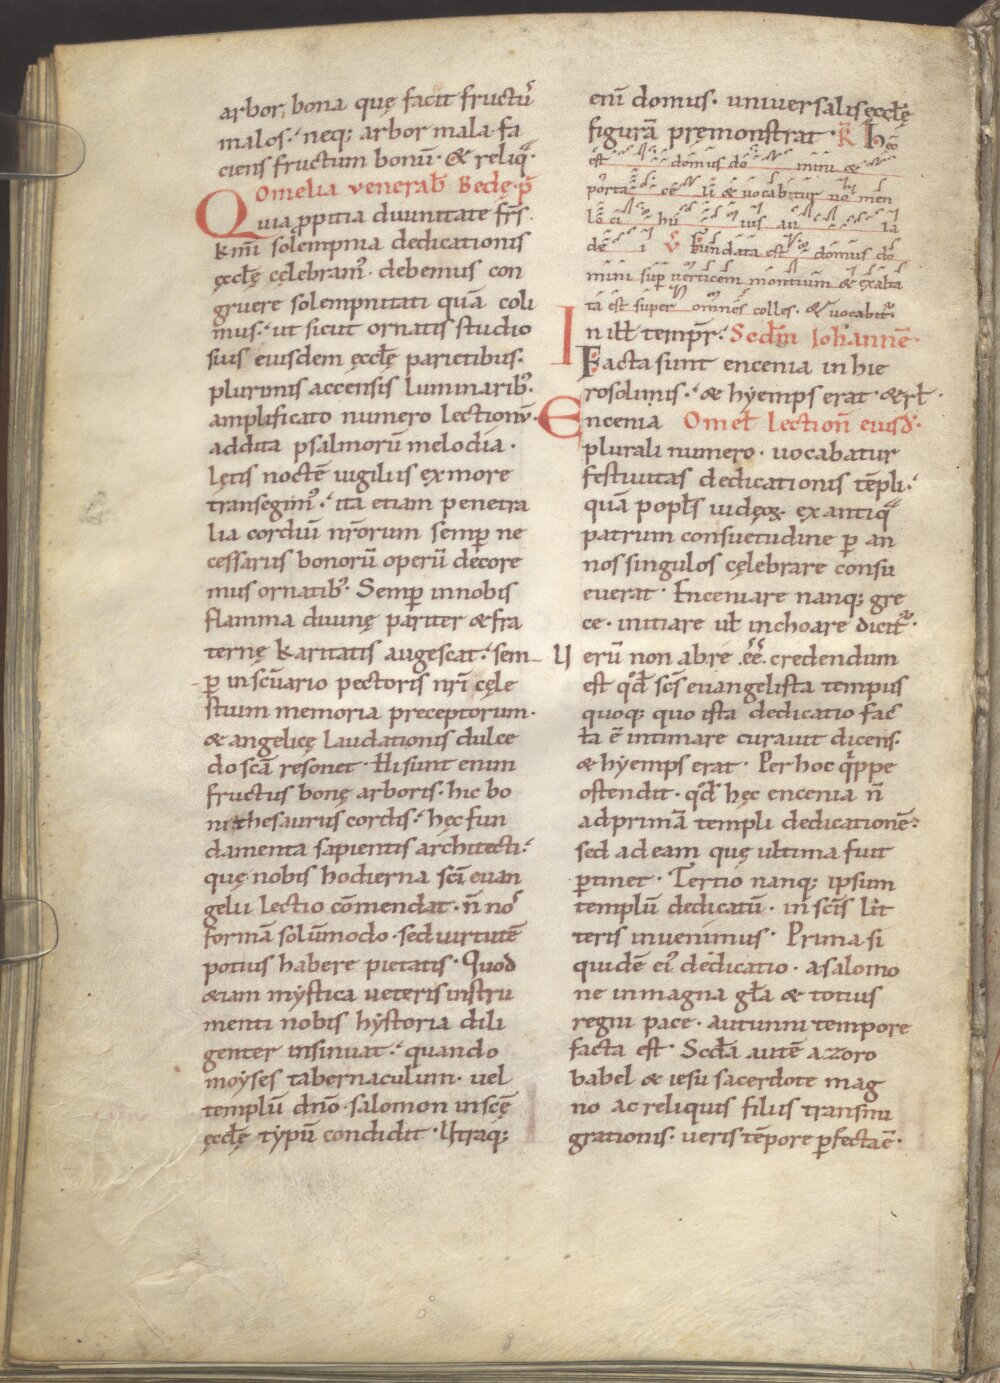 arbor, bona quę facit fructū
malos. neq; arbor mala fa
ciens fructum bonū. & reliq̄.
Omelia venerab̄ Bedę p̄
Quia ꝓpitia diuinitate fr̄s
km̄i solempnia dedicationis
ęccłę cęlebram᾿. debemus con
gruere solempnitati quā coli
mus. ut sicut ornatis studio
sius eiusdem ęccłę parietibus.
plurimis accensis luminarib᾿.
amplificato numero lectionū.
addita psalmorū melodia.
lętis noctē uigiliis ex more
transegim᾿. ita etiam penetra
lia cordiū nr̄orum semꝑ ne
cessariis bonorū operū decore
mus ornatib᾿. Semꝑ in nobis
flamma diuinę pariter & fra
ternę karitatis augescat. sem
ꝑ in sc̄uario pectoris nr̄i cęle
stium memoria preceptorum.
& angelicę laudationis dulce
do sc̄a resonet. Hi sunt enim
fructus bonę arboris. hic bo
ni thesaurus cordis. hęc fun
damenta sapientis architecti.
quę nobis hodierna sc̄i euan
gelii lectio cōmendat. n̄ no᾿
formā solūmodo. sed uirtutē
potius habere pietatis. Quod
&iam mẏstica ueteris instru
menti nobis hẏstoria dili
genter insinuat. quando
moẏses tabernaculum. uel
templū dn̄o salomon in scę̄
ęccłę tẏpū condidit. Utraq;
enī domus. uniuersalis ęccłę
figurā pręmonstrat. R̄ Hęc
est domus do mini &
porta cę li & uocabitur no men
lo ci hu ius au la
de i V̄ Fundata est domus do
mini suꝑ uerticem montium & exalta
ta est super omnes colles. & uocabit᾿.
In ill̄ tempr̄. Scdm̄ Iohannē.
Facta sunt encenia in hie
rosolimis. & hẏemps erat. & rł.
Encenia Omeł lection̄ eiusd᾿.
plurali numero. uocabatur
festiuitas dedicationis tēpli.
quā popłs iudęoꝝ. ex antiq̄
patrum consuetudine ꝑ an
nos singulos cęlebrare consu
euerat. Enceniare nanq; gre
ce. initiare uł inchoare dicit᾿.
Uerū non ab re ēē. credendum
est qđ sc̄s euangelista tempus
quoq; quo ista dedicatio fac
ta ē intimare curauit dicens.
& hẏemps erat. Per hoc quippe
ostendit. qđ hęc encenia n̄
ad primā templi dedicationē.
sed ad eam quę ultima fuit
ꝑtinet. Tertio nanq; ipsum
templū dedicatū. in sc̄is lit
teris inuenimus. Prima si
quidē ei᾿ dedicatio. a salomo
ne in magna gła & totius
regni pace. autumni tempore
facta est. Scđa autē a zoro
babel & iesu sacerdote mag
no ac reliquis filiis transmi
grationis. ueris tēpore ꝑfecta ē.